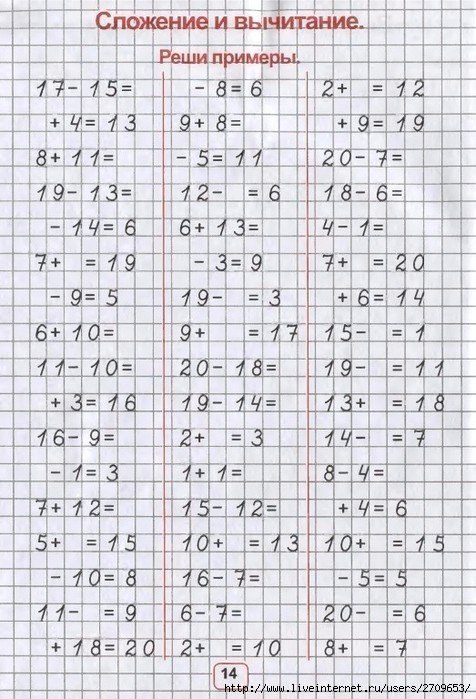 Сложение и вычитание.
Реши примеры.
17- 15= - 8= 6 2+ = 12
+ 4= 13 9+ 8= + 9= 19
8+ 11= - 5= 11 20- 7=
19- 13= 12- = 6 18- 6=
- 14= 6 6+ 13= 4- 1=
7+ = 19 - 3= 9 7+ = 20
- 9= 5 19- = 3 + 6= 14
6+ 10= 9+ = 17 15- = 1
11- 10= 20- 18= 19- = 11
+ 3= 16 19- 14= 13+ = 18
16- 9= 2+ = 3 14- = 7
- 1= 3 1+ 1= 8- 4=
7+ 12= 15- 12= + 4= 6
5+ = 15 10+ = 13 10+ = 15
- 10= 8 16- 7= - 5= 5
11- = 9 6- 7= 20- = 6
+ 18= 20 2+ = 10 8+ = 7
14
http://www.liveinternet.ru/users/2709653/